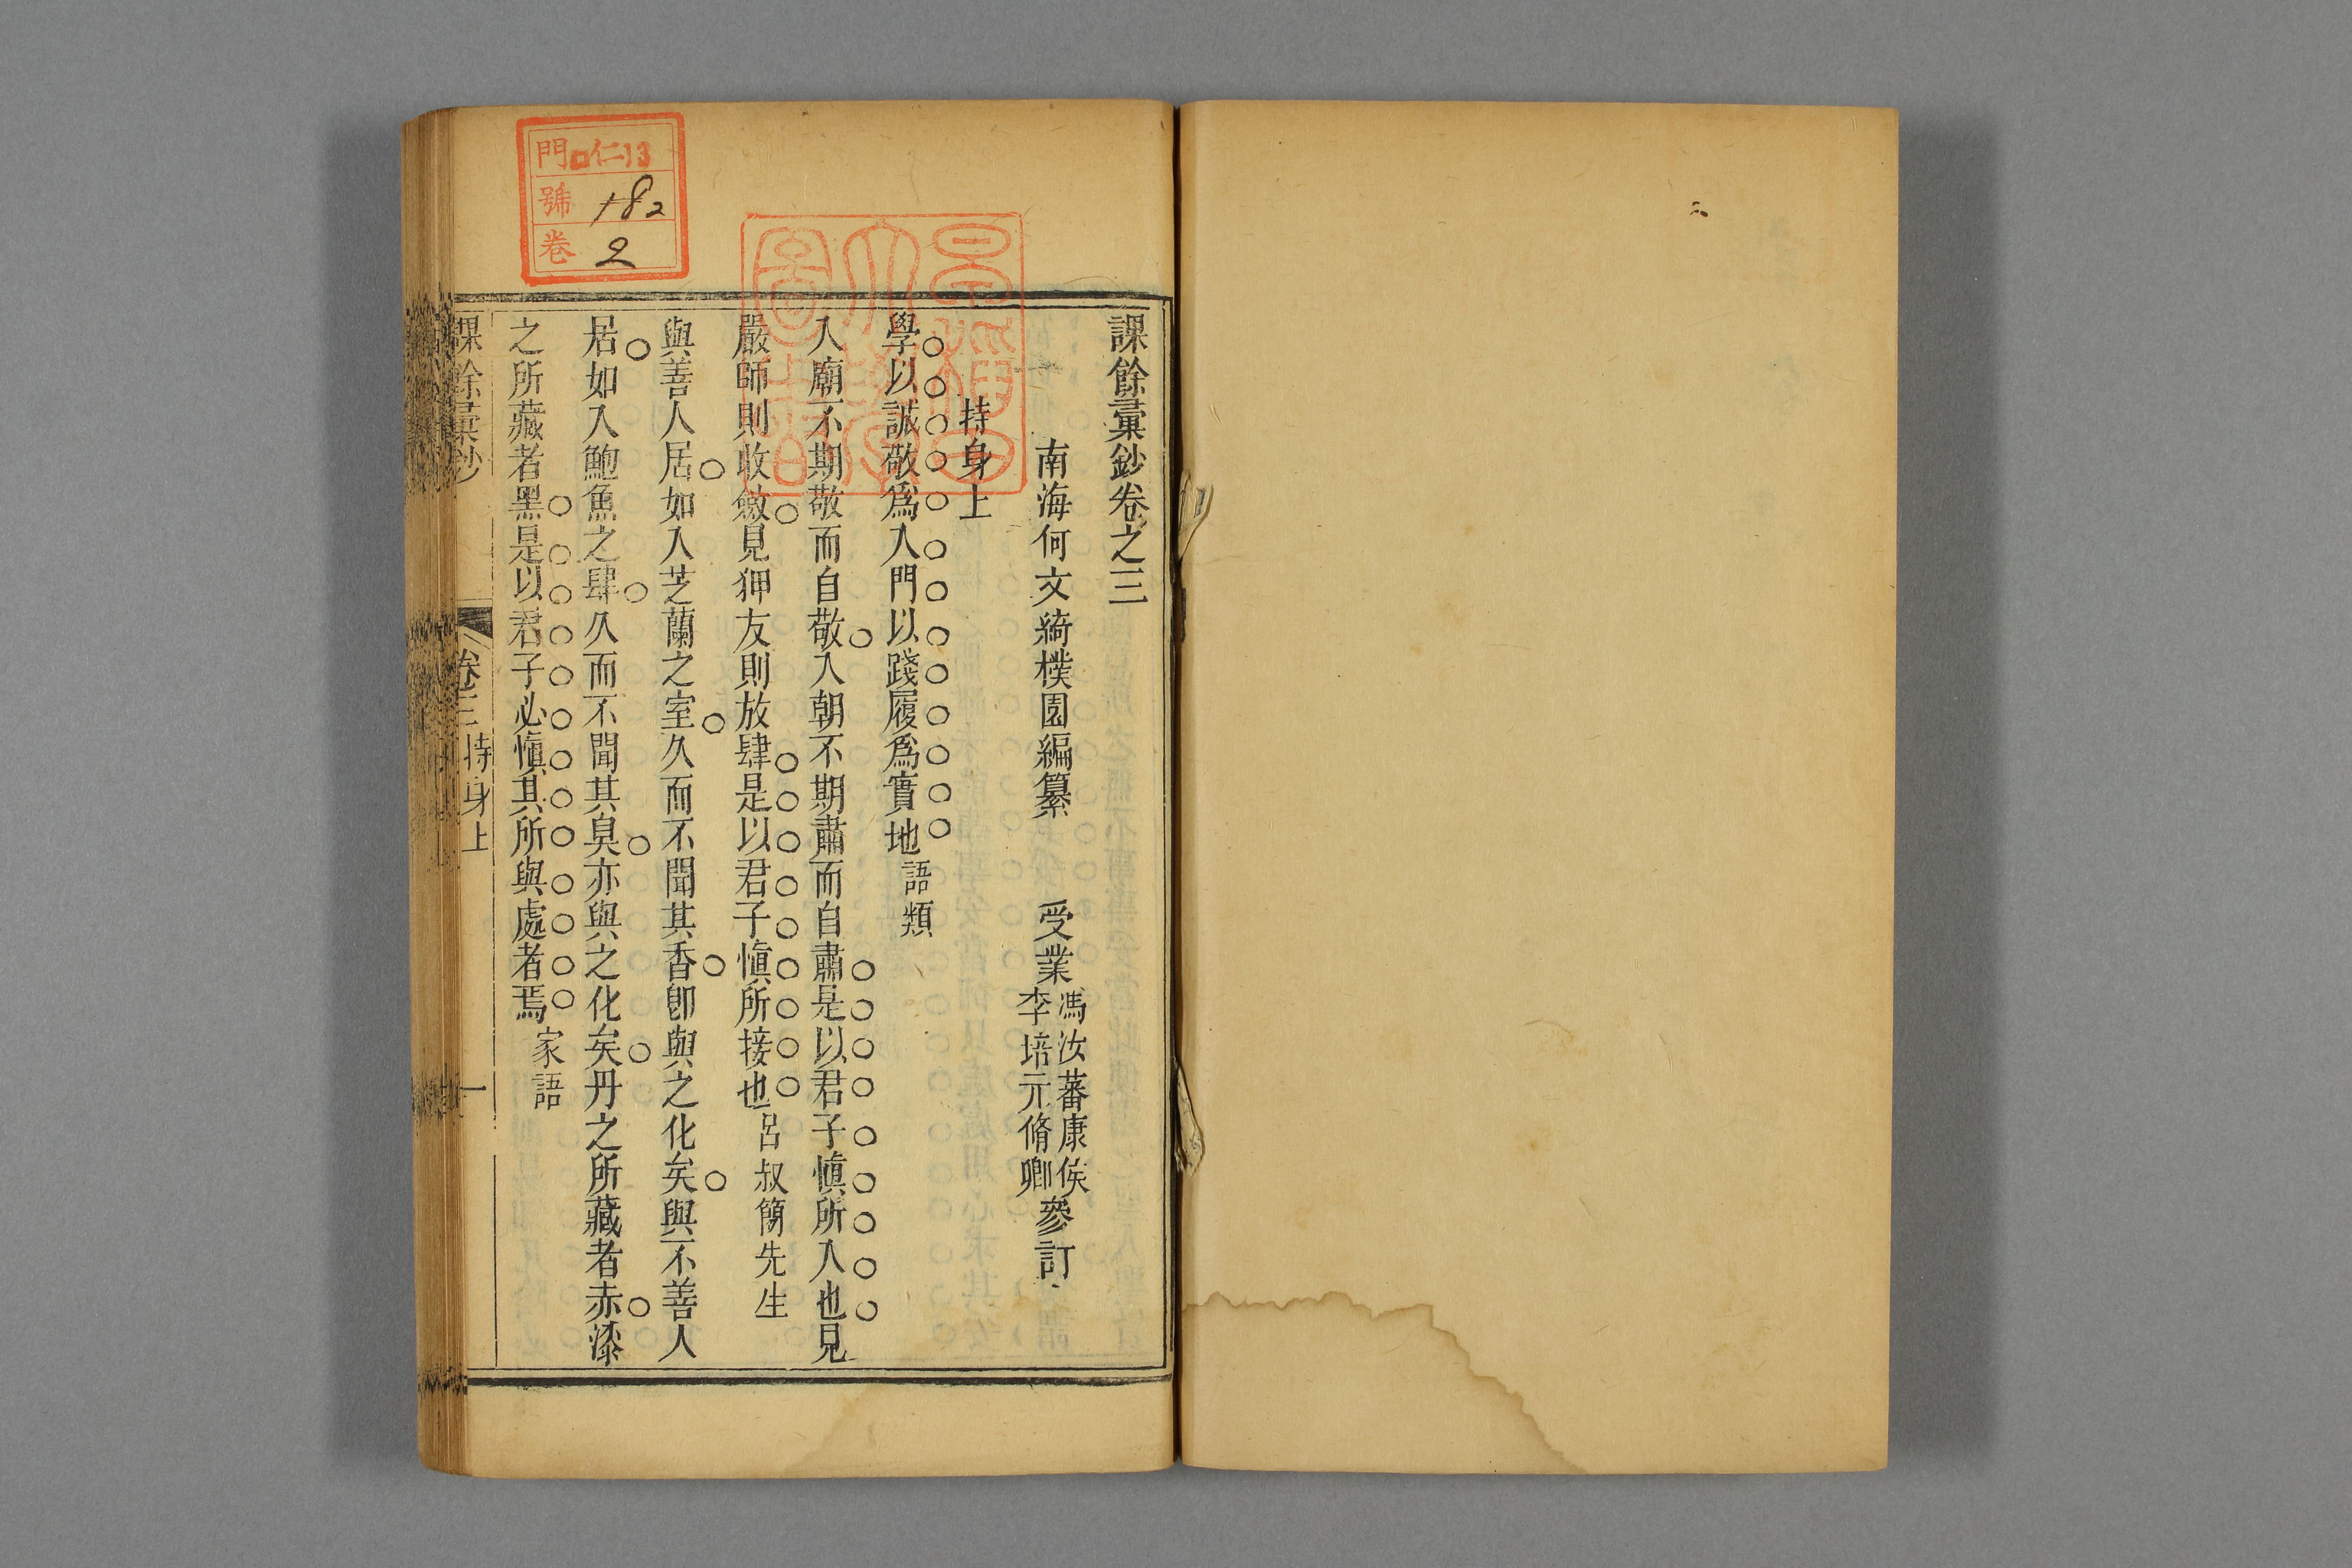 課餘彙鈔卷之三
南海何文綺樸園編纂 受業 馮汝蕃康侯 李培元脩卿 參訂
持身上
學以誠敬爲入門以踐履爲實地 語類
入廟不期敬而自敬入朝不期肅而自肅是以君子愼所入也見
嚴師則收斂見狎友則放肆是以君子愼所接也 呂叔簡先生
與善人居如入芝蘭之室久而不聞其香卽與之化矣與不善人
居如入鮑魚之肆久而不聞其臭亦與之化矣丹之所藏者赤漆
之所藏者黑是以君子必愼其所與處者焉 家語
課餘彙鈔 卷三 持身上 一
門 仁13
號 182
卷 2